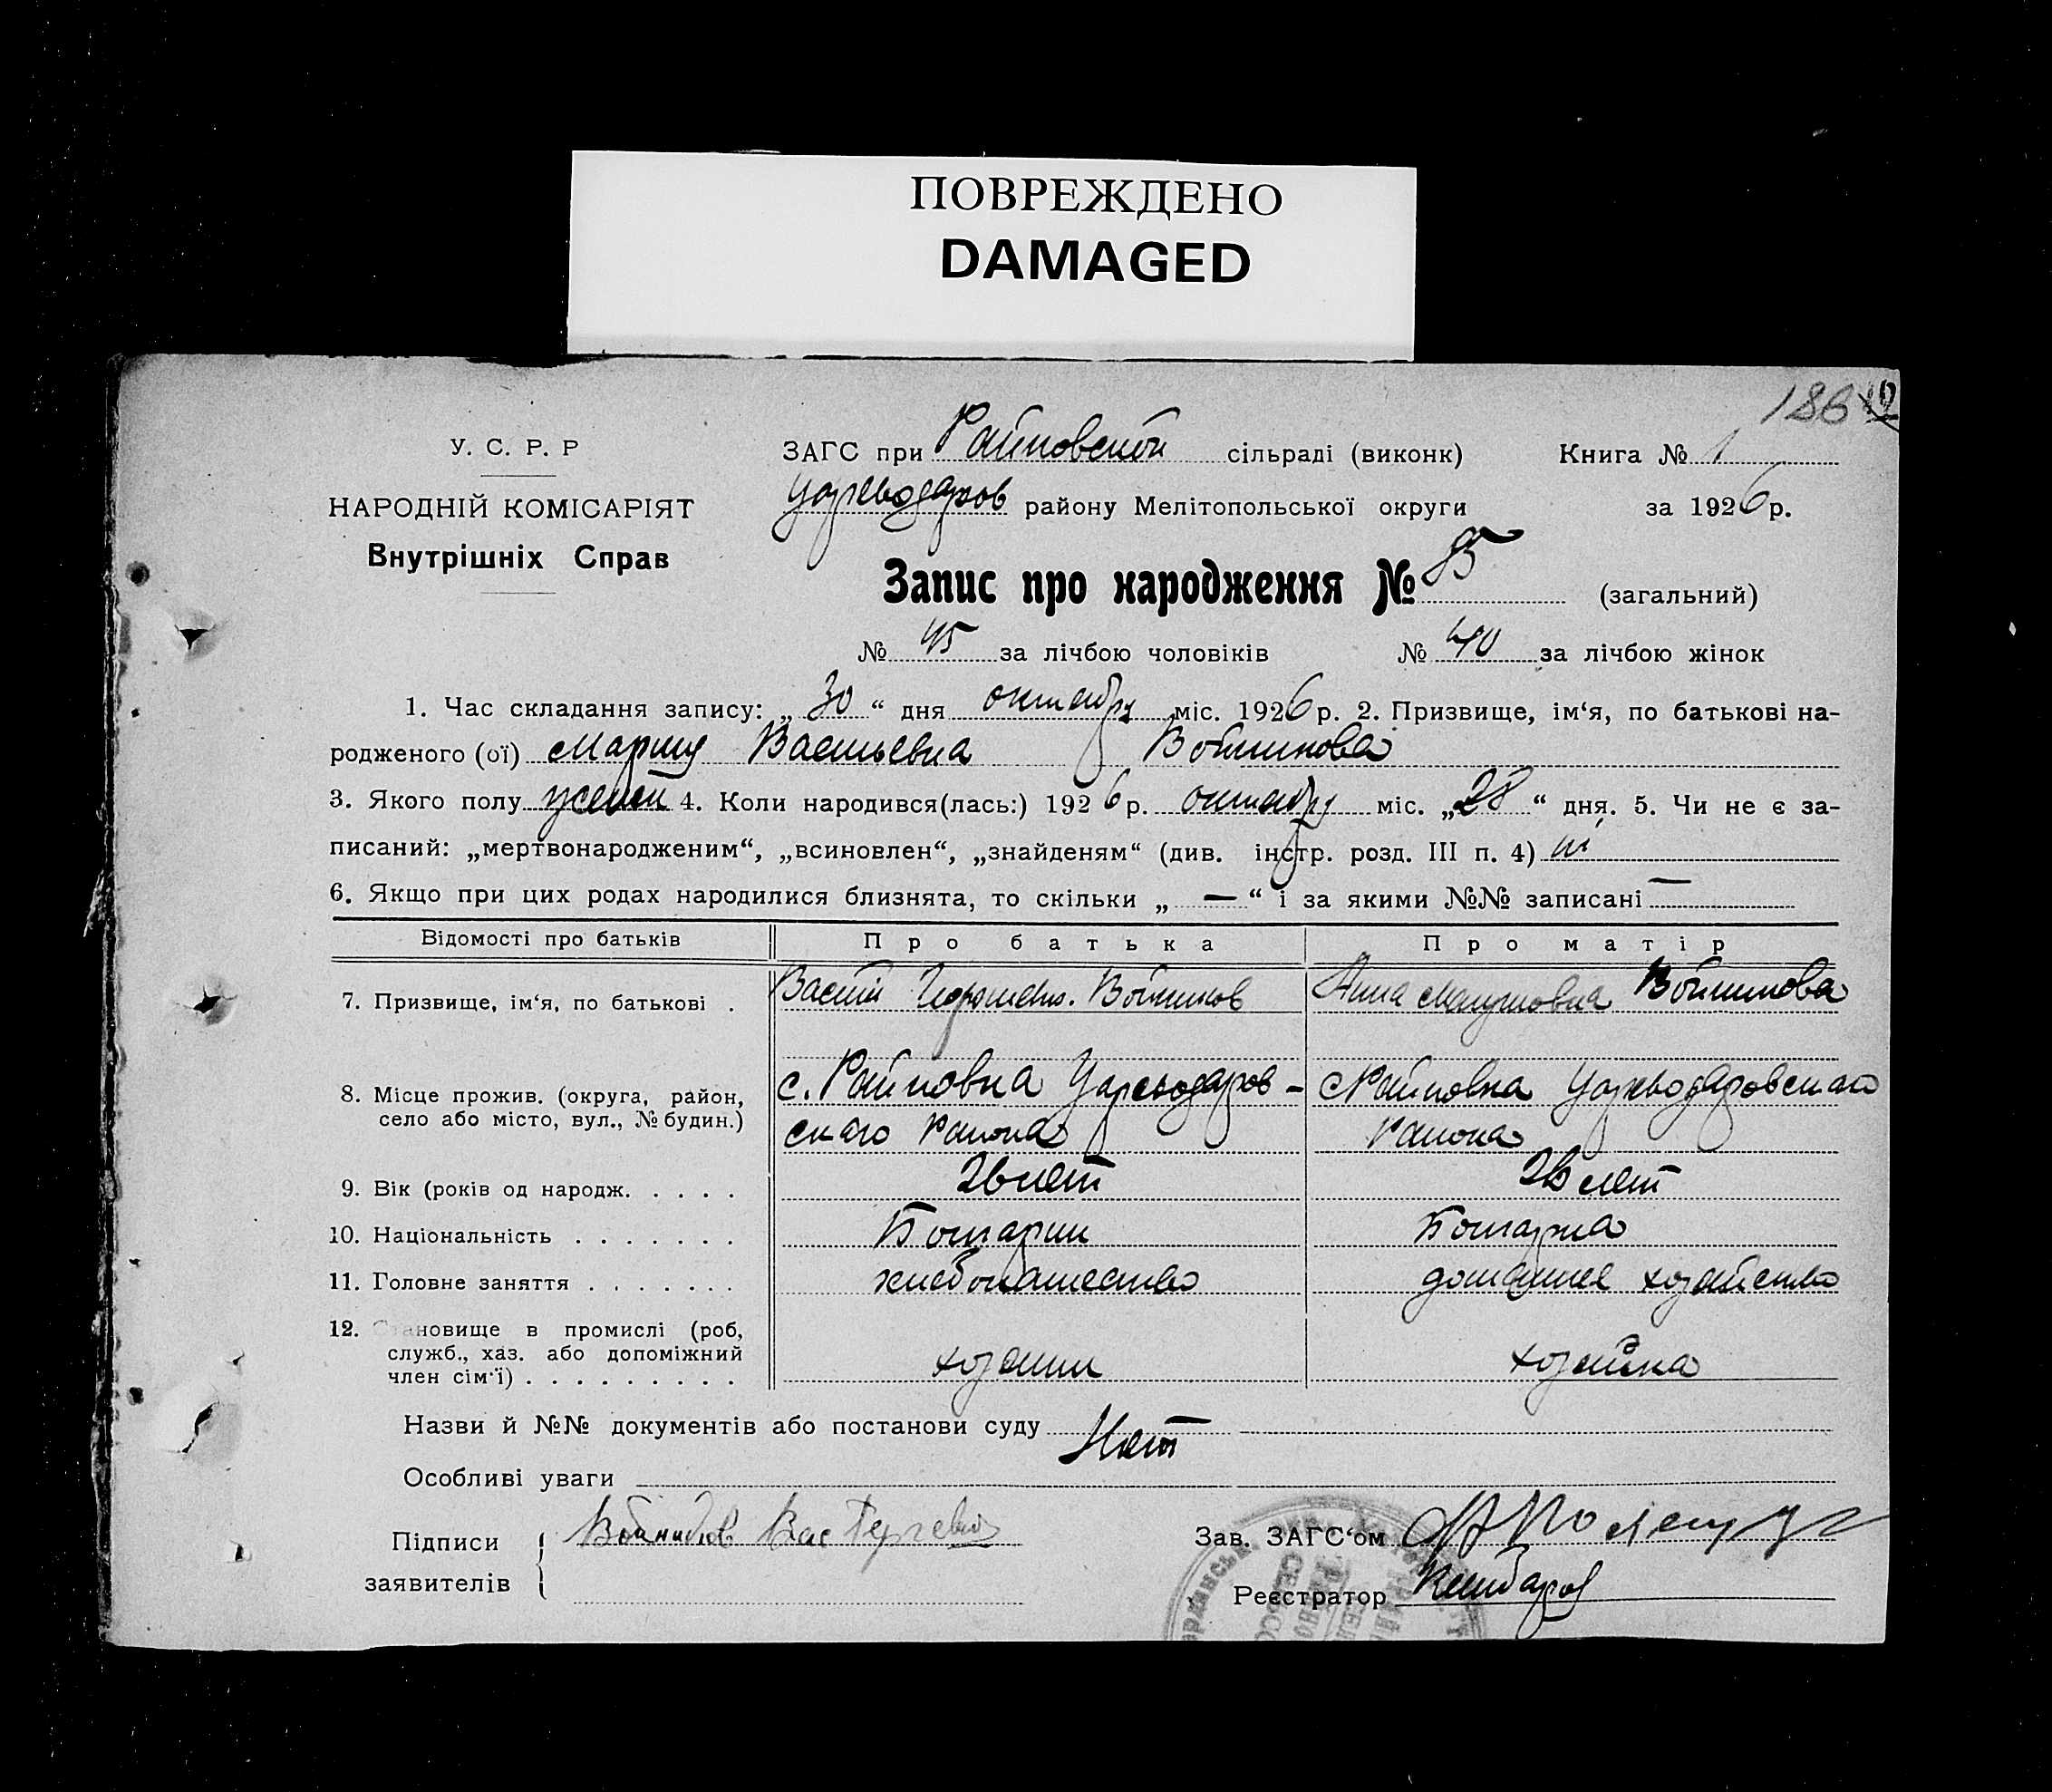 ПОВРЕЖДЕНО
DAMAGED
186
У. С. Р. Р
ЗАГС при Райновской сільраді (виконк) Книга № 1
НАРОДНІЙ КОМІСАРІЯТ
Цареводаров району Мелітопольської округи за 1926 р.
Внутрішніх Справ
Запис про народження № 85 (загальний)
№ 45 за лічбою чоловіків № 40 за лічбою жінок
1. Час складання запису: „ 30 “ дня октября міс. 1926 р. 2. Призвище, ім‘я, по батькові на-
родженого (ої) Мария Васильевна Войникова
3. Якого полу женск 4. Коли народився(лась:) 1926 р. октября міс. „28“ дня. 5. Чи не є за-
писаний: „мертвонародженим“, „всиновлен“, „знайденям“ (див. інстр. розд. III п. 4) ні
6. Якщо при цих родах народилися близнята, то скільки „ — “ і за якими №№ записані —
Відомості про батьків Про батька Про матір
7. Призвище, ім‘я, по батькові . Василий Войников Анна Войникова
8. Місце прожив. (округа, район, с. Райновка Цареводаров- с Райновка Цареводаровскаго
село або місто, вул., № будин.) скаго района района
9. Вік (років од народж. . . . . 26 лет 26 лет
10. Національність . . . . . . . Болгарин Болгарка
11. Головне заняття . . . . . . . хлебопашество домашнее хозяйство
12. Становище в промислі (роб,
служб., хаз. або допоміжний
член сім‘ї) . . . . . . . . . хозяин хозяйка
Назви й №№ документів або постанови суду Нет
Особливі уваги
Підписи Войников Вас
заявителів
Зав. ЗАГС‘ом
Реєстратор